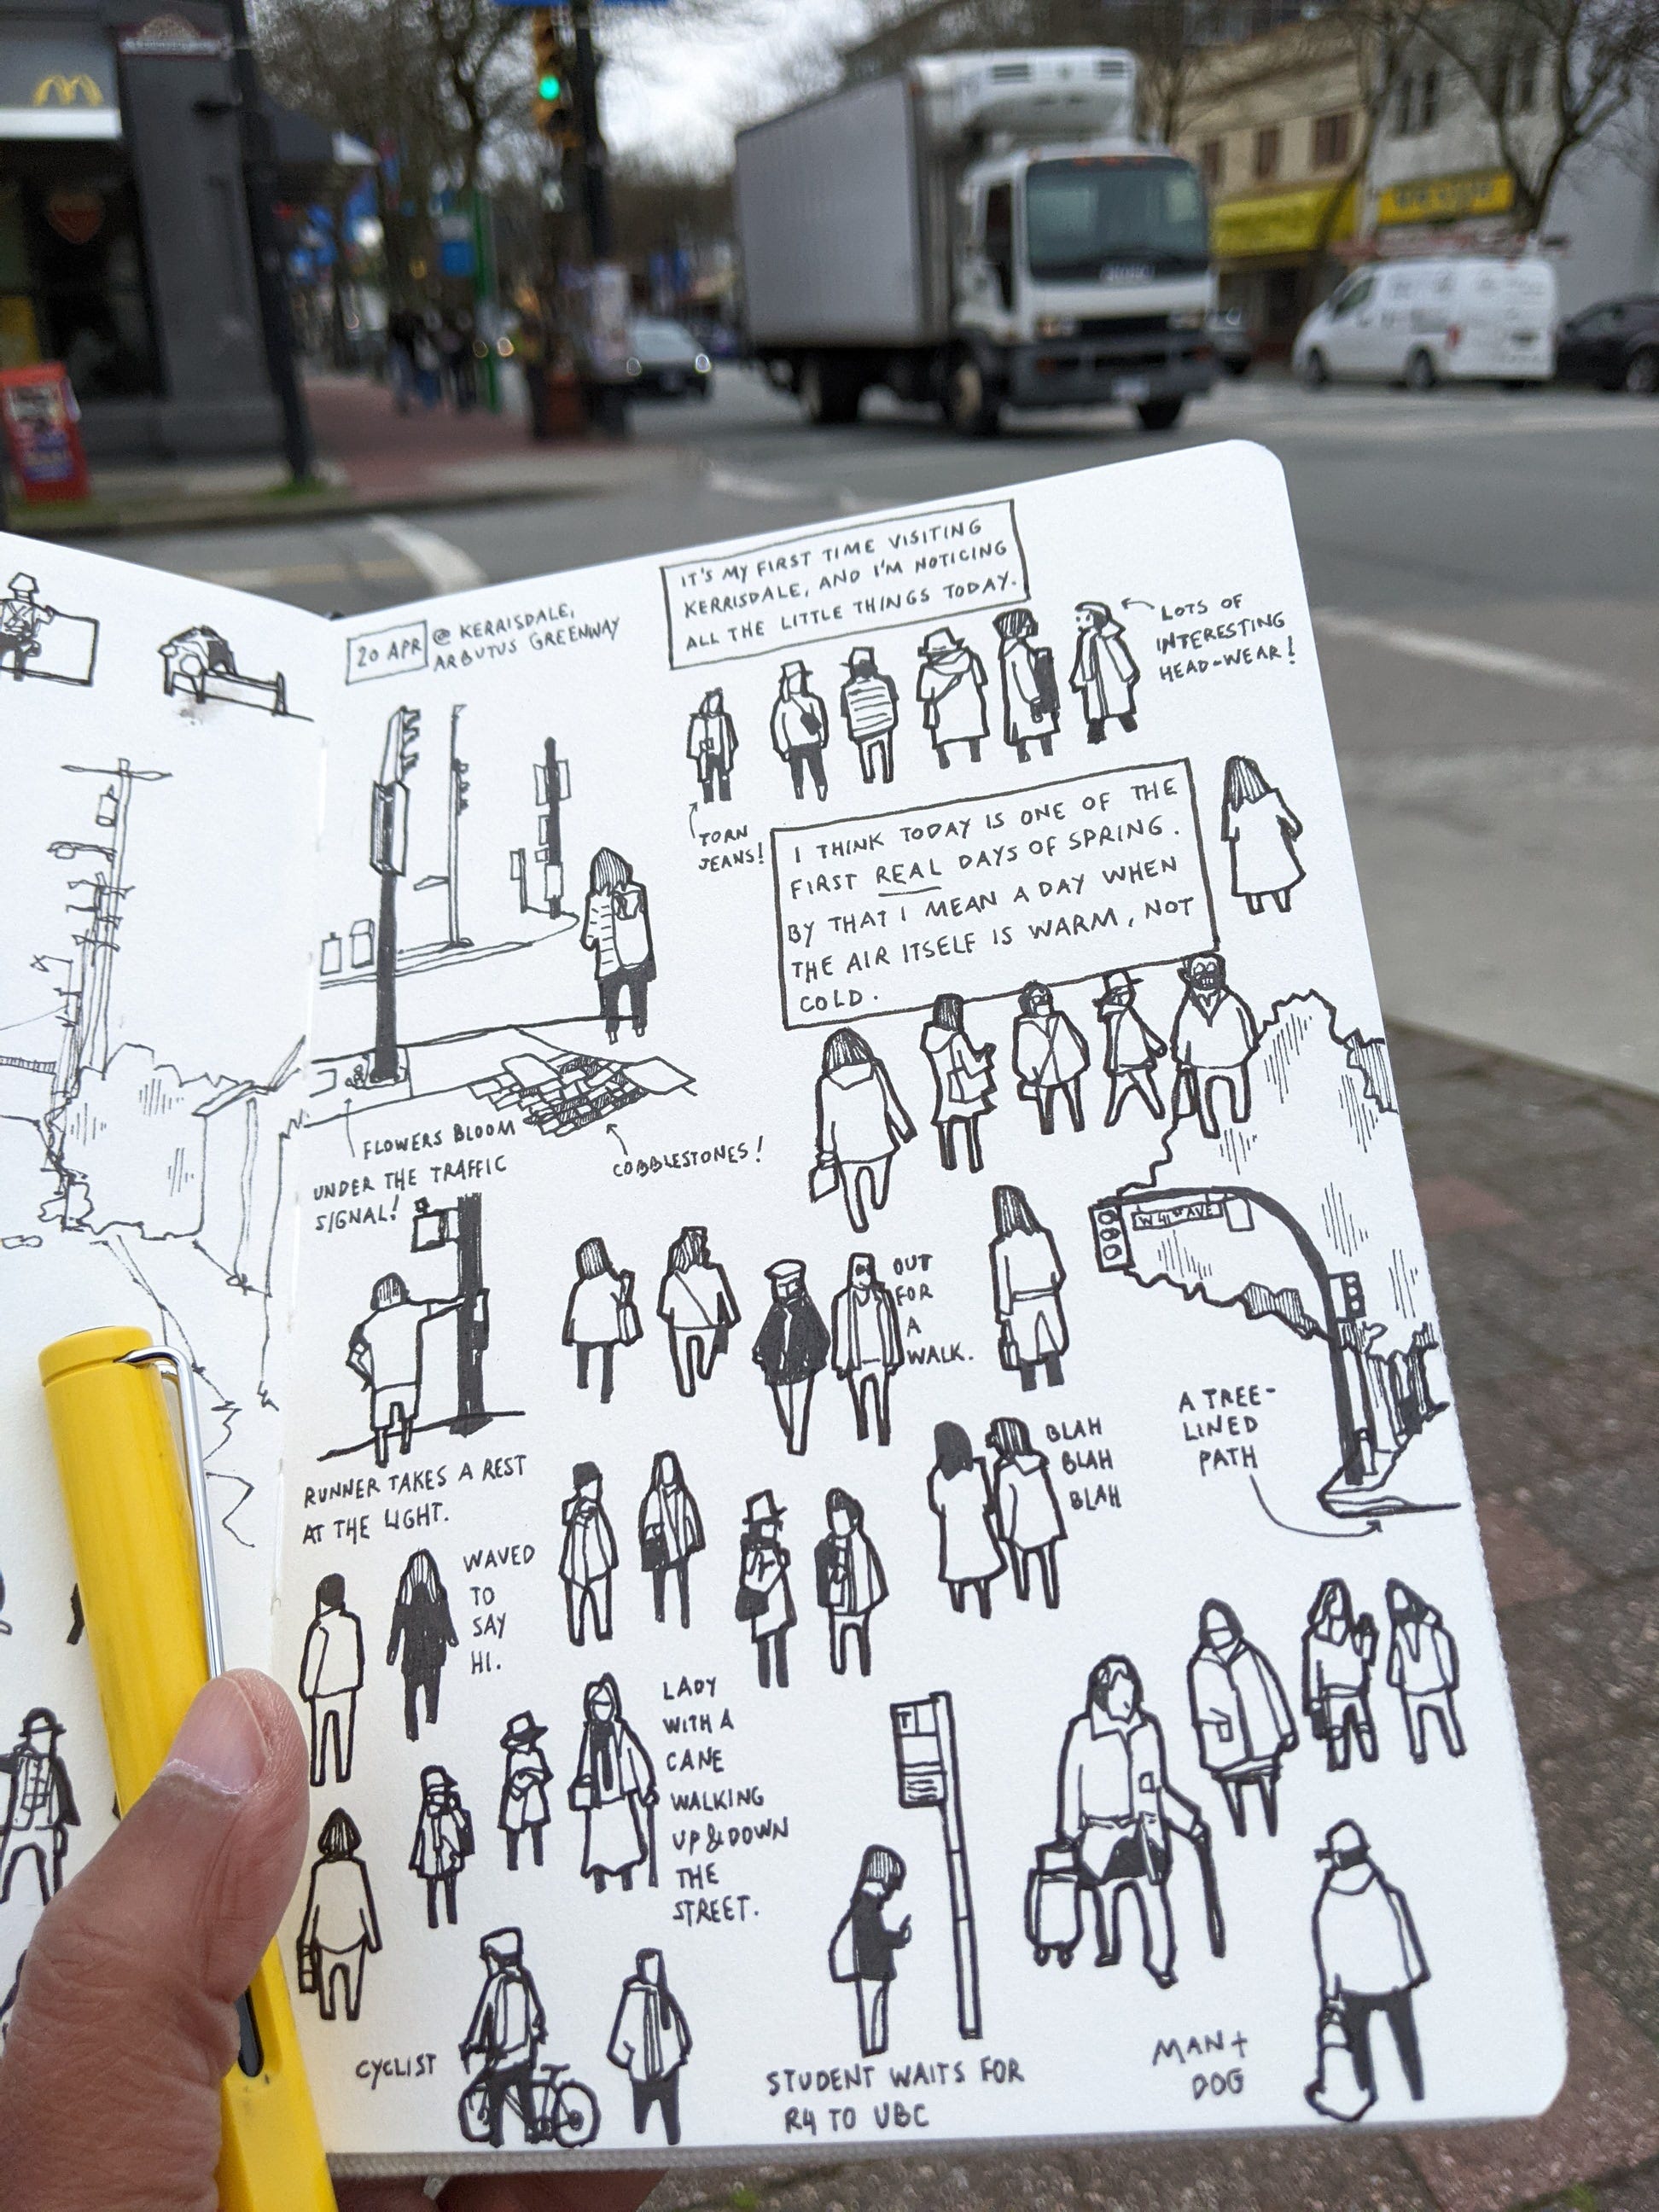 20 APR
@ KERRISDALE,
ARBUTUS GREENWAY
IT'S MY FIRST TIME VISITING
KERRISDALE, AND I'M NOTICING
ALL THE LITTLE THINGS TODAY.
LOTS OF
INTERESTING
HEAD-WEAR!
TORN
JEANS!
I THINK TODAY IS ONE OF THE
FIRST REAL DAYS OF SPRING.
BY THAT I MEAN A DAY WHEN
THE AIR ITSELF IS WARM, NOT
COLD.
FLOWERS BLOOM
UNDER THE TRAFFIC
SIGNAL!
COBBLESTONES!
W 41 AVE
OUT
FOR
A
WALK.
RUNNER TAKES A REST
AT THE LIGHT.
BLAH
BLAH
BLAH
A TREE-
LINED
PATH
WAVED
TO
SAY
HI.
LADY
WITH A
CANE
WALKING
UP & DOWN
THE
STREET.
T
CYCLIST
STUDENT WAITS FOR
R4 TO UBC
MAN +
DOG